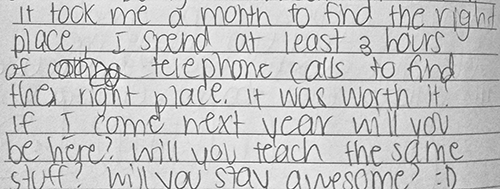 it took me a month to find the right
place, I spend at least 3 hours
of telephone calls to find
the right place. it was worth it!
if I come next year will you
be here? will you teach the same
stuff? will you stay awesome? :D